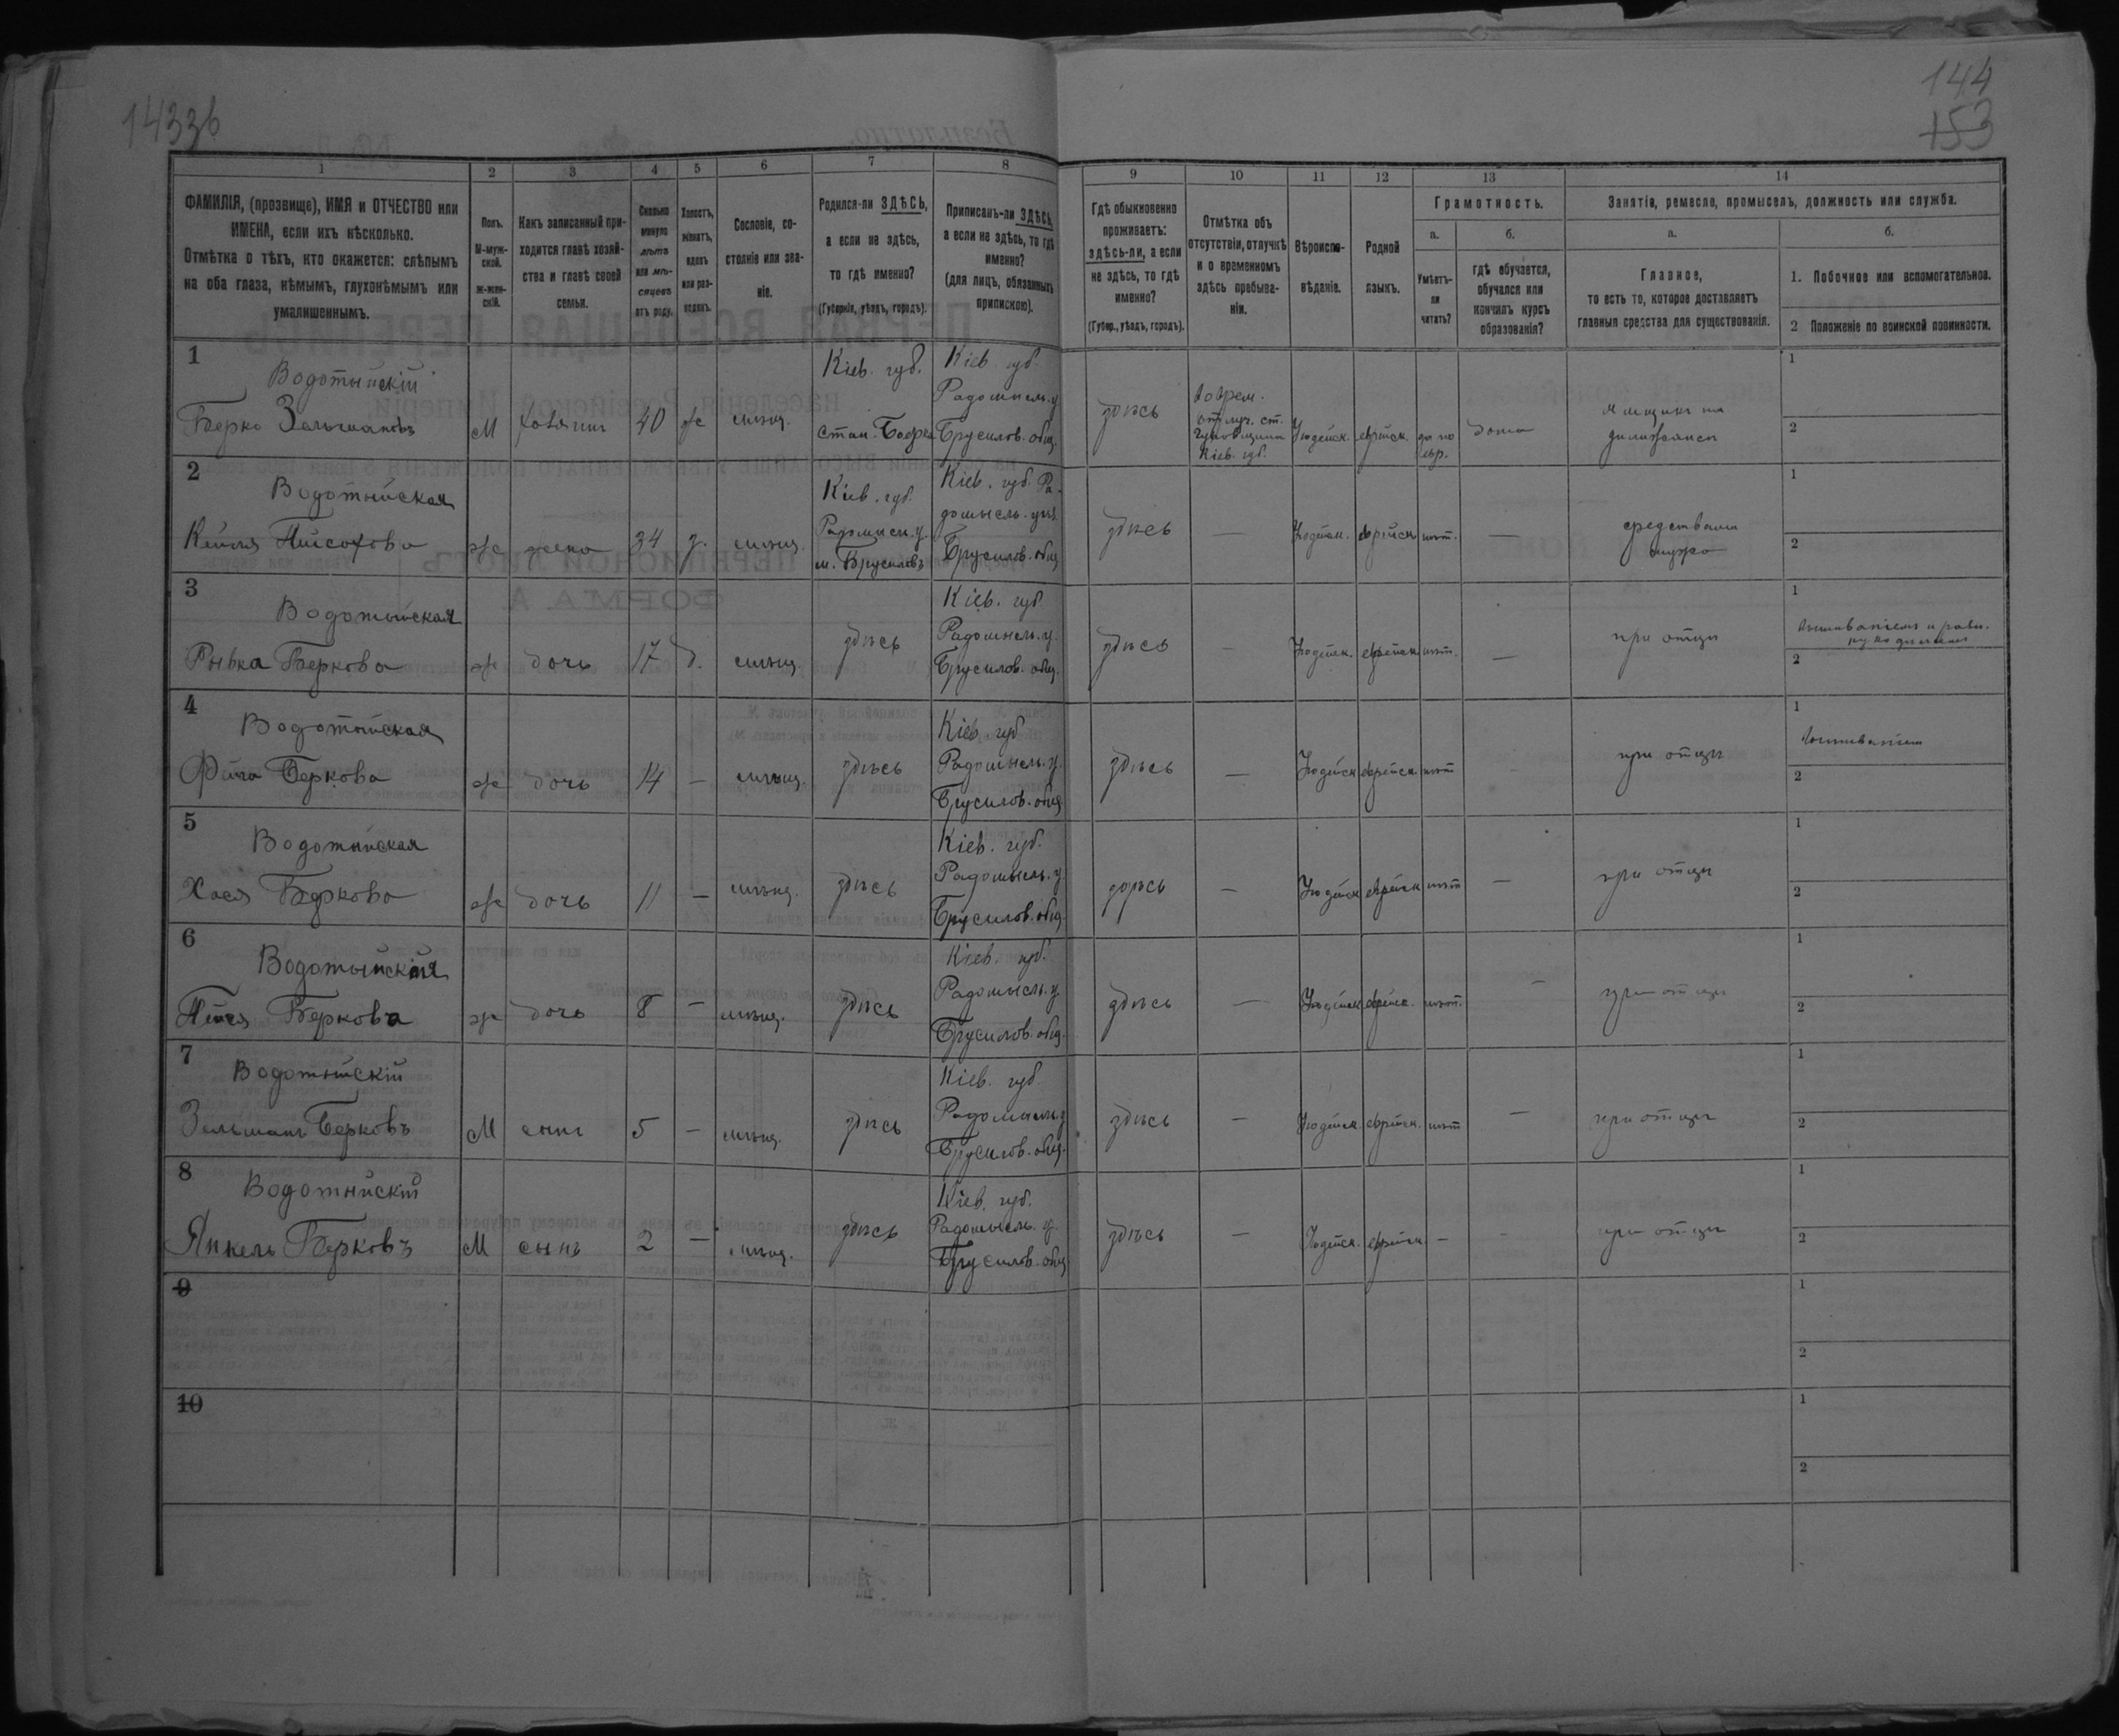 143зв
144
153
1
2
3
4
5
6
7
8
9
10
11
12
13
14
ФАМИЛІЯ, (прозвище), ИМЯ и ОТЧЕСТВО или
ИМЕНА, если ихъ нѣсколько.
Отмѣтка о тѣхъ, кто окажется: слѣпымъ
на оба глаза, нѣмымъ, глухонѣмымъ или
умалишеннымъ.
Полъ.
М-муж-
ской.
ж-жен-
скій.
Какъ записанный при-
ходится главѣ хозяй-
ства и главѣ своей
семьи.
Сколько
минуло
лѣтъ
или мѣ-
сяцевъ
отъ роду.
Холостъ,
женатъ,
вдовъ
или раз-
веденъ.
Сословіе, со-
стояніе или зва-
ніе.
Родился-ли ЗДѢСЬ,
а если не здѣсь,
то гдѣ именно?
(Губернія, уѣздъ, городъ).
Приписанъ-ли ЗДѢСЬ,
а если не здѣсь, то гдѣ
именно?
(для лицъ, обязанныхъ
припискою).
Гдѣ обыкновенно
проживаетъ:
здѣсь-ли, а если
не здѣсь, то гдѣ
именно?
(Губер., уѣздъ, городъ).
Отмѣтка объ
отсутствіи, отлучкѣ
и о временномъ
здѣсь пребыва-
ніи.
Вѣроиспо-
вѣданіе.
Родной
языкъ.
Грамотность.
а.
б.
Умѣетъ-
ли
читать?
гдѣ обучается,
обучался или
кончилъ курсъ
образованія?
Занятіе, ремесло, промыселъ, должность или служба.
а.
б.
Главное,
то есть то, которое доставляетъ
главныя средства для существованія.
1. Побочное или вспомогательное.
2 Положеніе по воинской повинности.
1
Водотыйскій
Берко Зельмановъ
М
хозяинъ
40
ж
мѣщ.
Кіев. губ.
Стан. Боярка
Кіев. губ.
Радомысль. у.
Брусилов. общ.
здѣсь
Кіев. губ.
Іюдейск.
еврейск.
да по
евр.
дома
Ямщикъ на
дилижансѣ
1
2
2
Водотыйская
Пейсахова
ж
жена
34
з.
мѣщ.
Кіев. губ.
Радомысл. у.
м. Брусиловъ
Кіев. губ. Ра-
домысль. уѣз.
Брусилов. общ.
здѣсь
—
Іюдейск.
еврейск.
нѣт.
—
средствами
мужа
1
2
3
Водотыйская
Рывка Беркова
ж
дочь
17
д.
мѣщ.
здѣсь
Кіев. губ.
Радомысль. у.
Брусилов. общ.
здѣсь
—
Іюдейск.
еврейск.
нѣт.
—
при отцѣ
1
2
4
Водотыйская
Беркова
ж
дочь
14
—
мѣщ.
здѣсь
Кіев. губ.
Радомысль. у.
Брусилов. общ.
здѣсь
—
Іюдейск.
еврейск.
нѣт
-
при отцѣ
1
2
5
Водотыйская
Хася Беркова
ж
дочь
11
—
мѣщ.
здѣсь
Кіев. губ.
Радомысль. у.
Брусилов. общ.
здѣсь
—
Іюдейск.
еврейск.
нѣт
—
при отцѣ
1
2
6
Водотыйская
Беркова
ж
дочь
8
—
мѣщ.
здѣсь
Кіев. губ.
Радомысль. у.
Брусилов. общ.
здѣсь
—
Іюдейск.
еврейск.
нѣт.
—
при отцѣ
1
2
7
Водотыйскій
Зельманъ Берковъ
М
сынъ
5
—
мѣщ.
здѣсь
Кіев. губ.
Радомысль. у.
Брусилов. общ.
здѣсь
—
Іюдейск.
еврейск.
нѣт
—
при отцѣ
1
2
8
Водотыйскій
Янкель Берковъ
М
сынъ
2
—
мѣщ.
здѣсь
Кіев. губ.
Радомысль. у.
Брусилов. общ.
здѣсь
—
Іюдейск.
еврейск.
—
-
при отцѣ
1
2
9
1
2
10
1
2